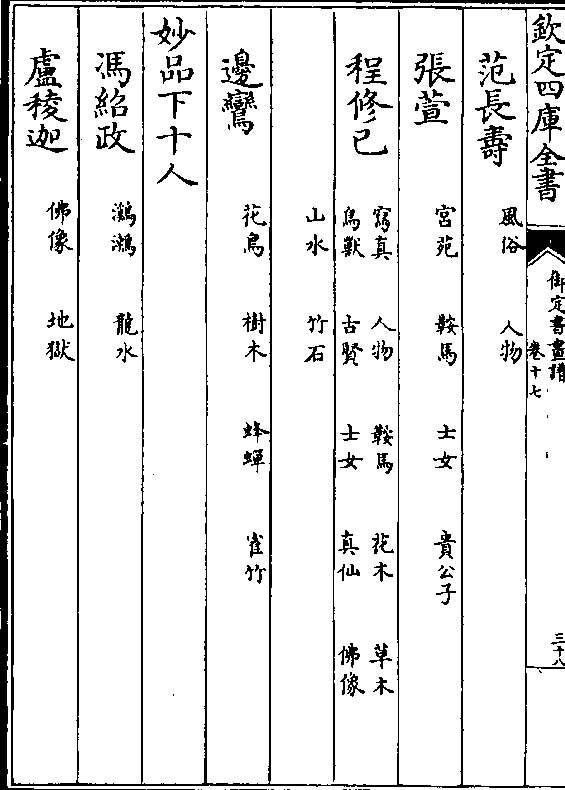 欽定四庫全書
御定書畫譜
卷十七
三十八
范長壽 風俗 人物
張萱 宮苑 鞍馬 士女 貴公子
程修已 寫真 人物 鞍馬 花木 草木
鳥獸 古賢 士女 真仙 佛像
山水 竹石
邊鸞 花鳥 樹木 蜂蟬 雀竹
妙品下十人
馮紹政 鸂鶒 龍水
盧稜迦 佛像 地獄